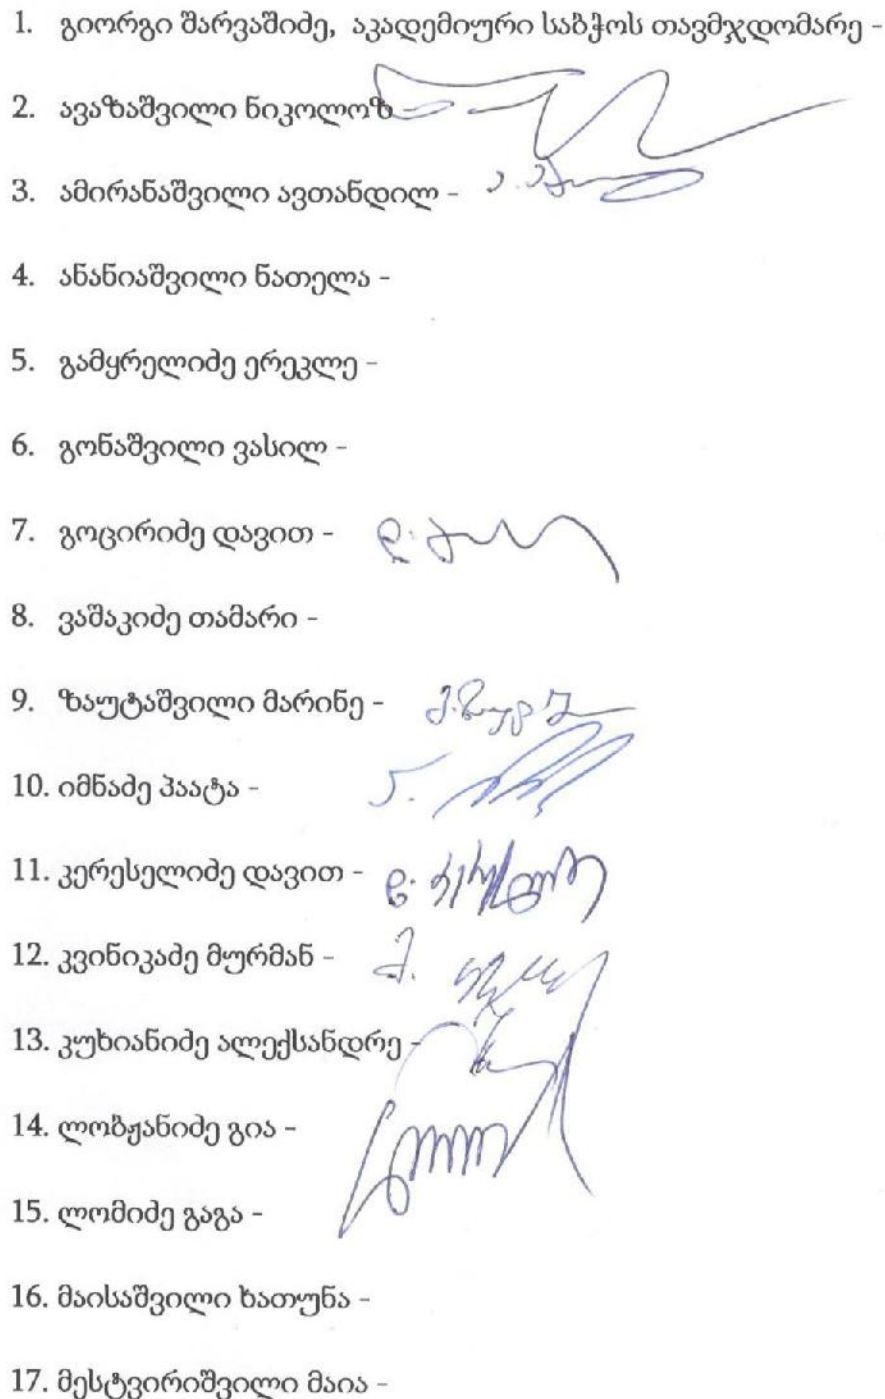 1. გიორგი შარვაშიძე, აკადემიური საბჭოს თავმჯდომარე -
2. ავაზაშვილი ნიკოლოზ -
3. ამირანაშვილი ავთანდილ -
4. ანანიაშვილი ნათელა -
5. გამყრელიძე ერეკლე -
6. გონაშვილი ვასილ -
7. გოცირიძე დავით -
8. ვაშაკიძე თამარი -
9. ზაუტაშვილი მარინე -
10. იმნაძე პაატა -
11. კერესელიძე დავით -
12. კვინიკაძე მურმან -
13. კუხიანიძე ალექსანდრე -
14. ლობჟანიძე გია -
15. ლომიძე გაგა -
16. მაისაშვილი ხათუნა -
17. მესტვირიშვილი მაია -